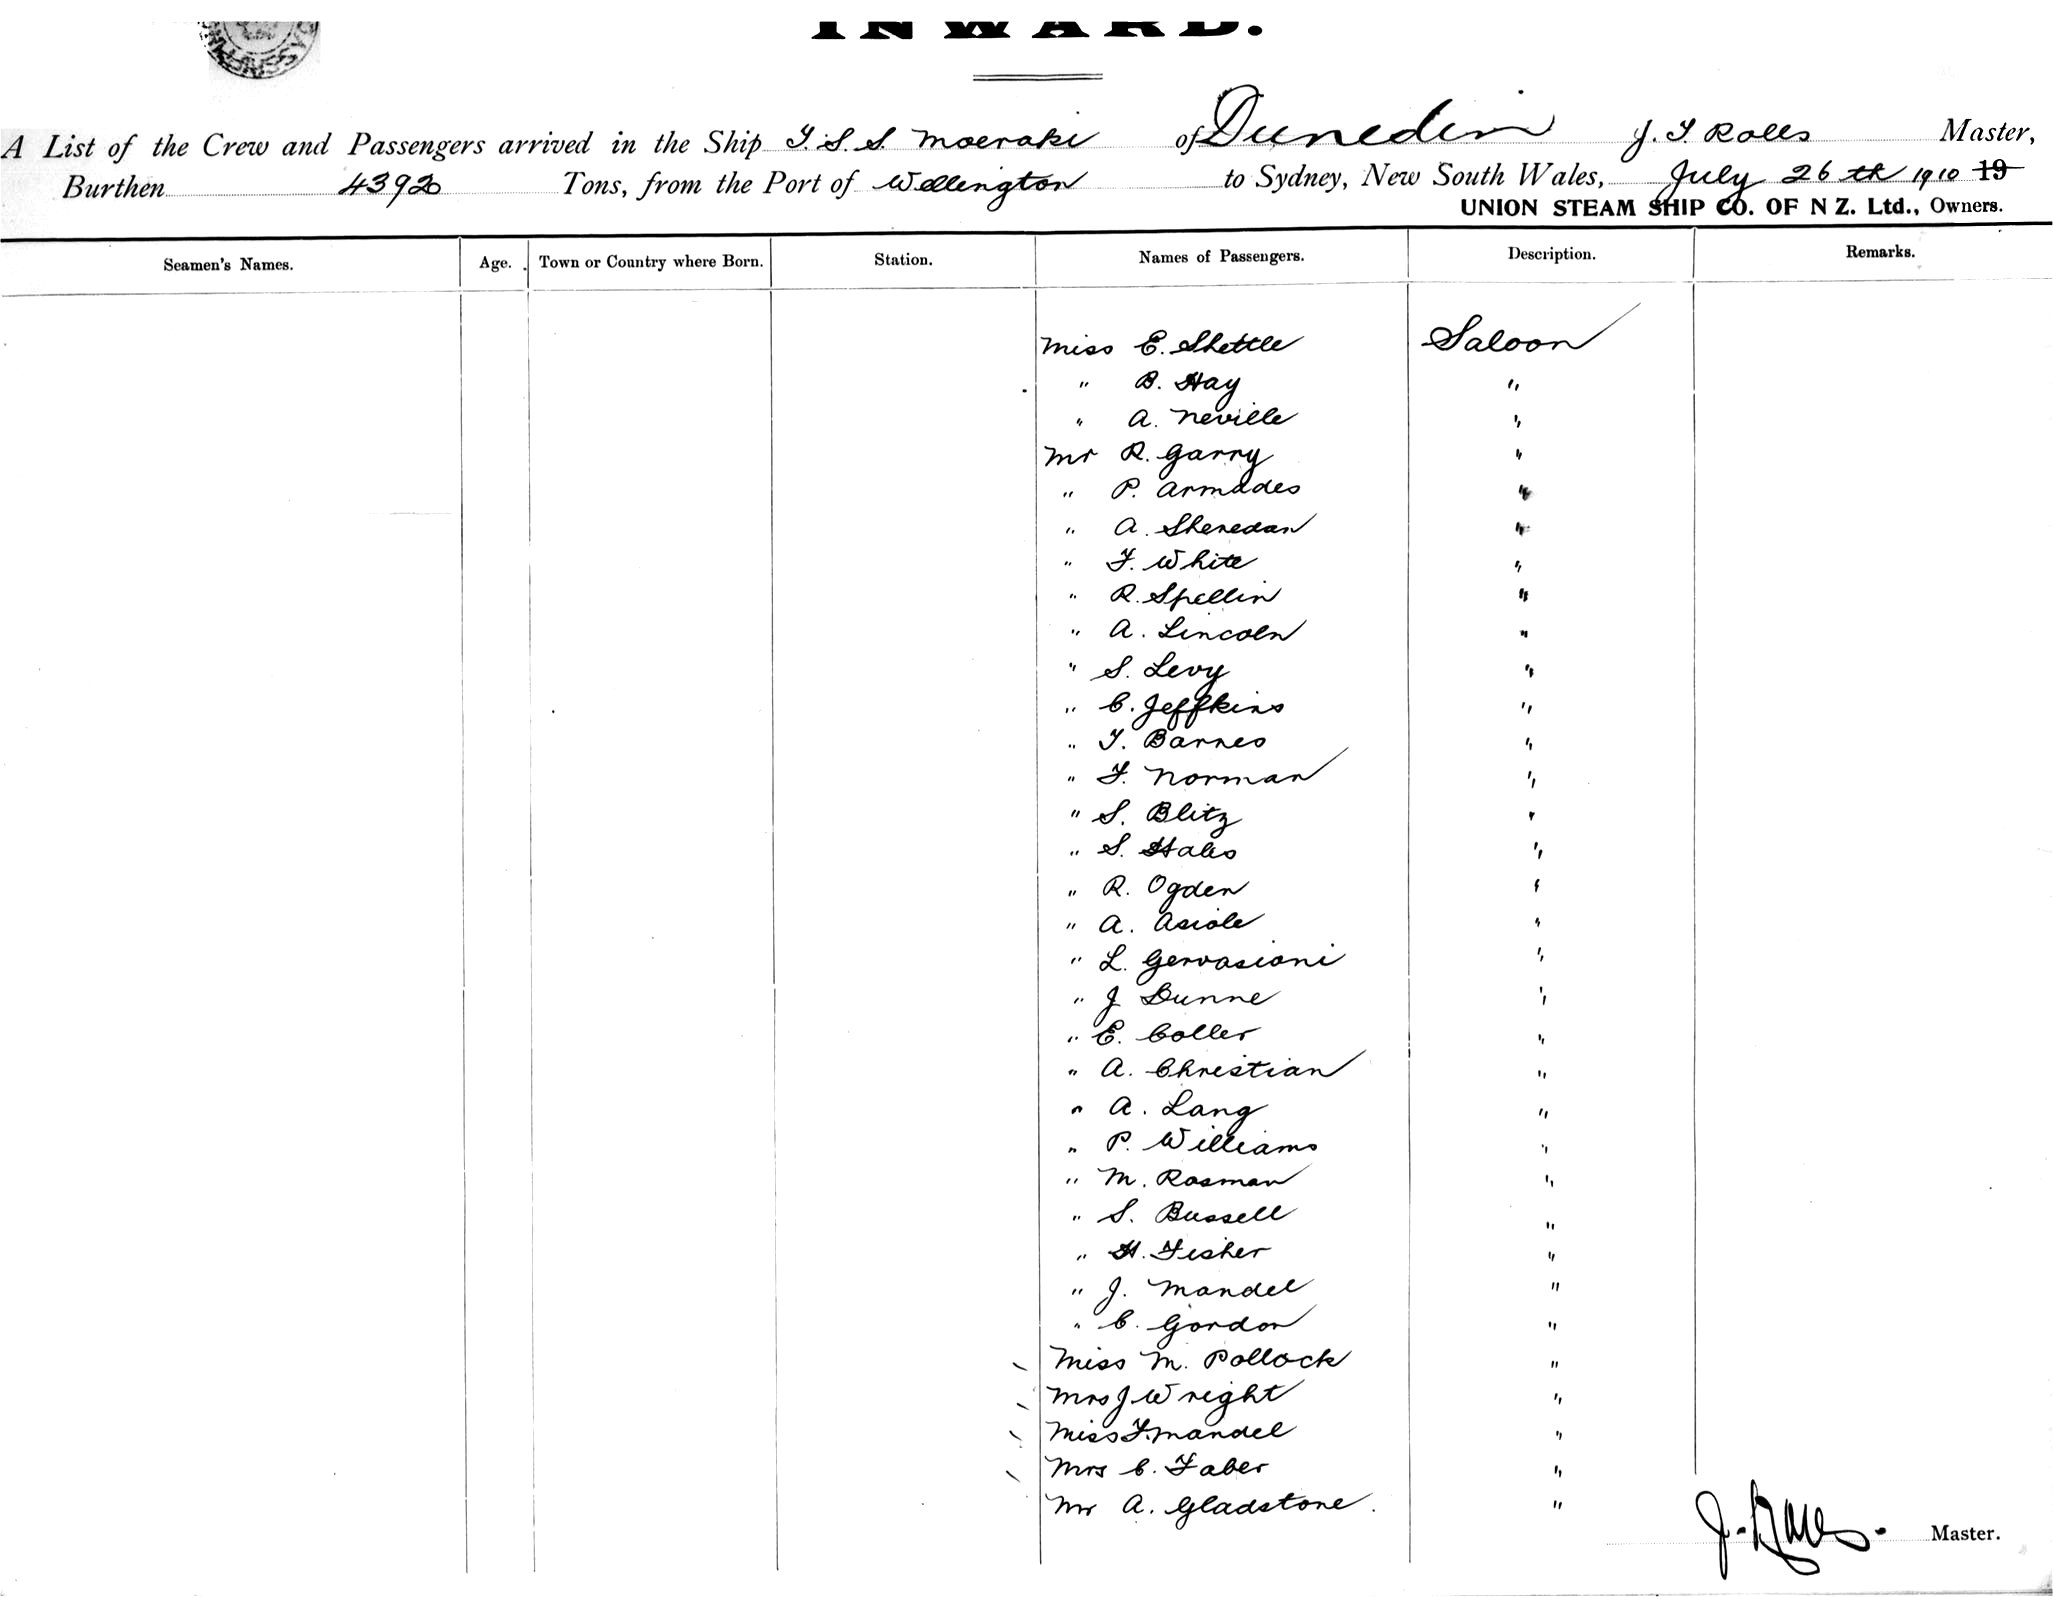 INWARD.
A List of the Crew and Passengers arrived in the Ship T.S.S. Moeraki of Dunedin J. T. Rolls Master,
Burthen 4392 Tons, from the Port of Wellington to Sydney, New South Wales, July 26th 1910 19
UNION STEAM SHIP CO. OF N Z. Ltd., Owners.
Seamen's Names. Age. Town or Country where Born. Station. Names of Passengers. Description. Remarks.
Miss E. Shettle Saloon
" B. Hay "
" A. Neville "
Mr R. Garry "
" P. Armades "
" A. Sheredan "
" F. White "
" R. Spellin "
" A. Lincoln "
" S. Levy "
" C. Jeffkins "
" T. Barnes "
" F. Norman "
" S. Blitz "
" S. Hales "
" R. Ogden "
" A. Asiole "
" L. Gervasioni "
" J Dunne "
" E. Coller "
" A. Christian "
" A. Lang "
" P. Williams "
" M. Rosman "
" S. Bussell "
" H. Fisher "
" J. Mandel "
" C. Gordon "
Miss M. Pollock "
Mrs J Wright "
Miss F. Mandel "
Mrs C. Faber "
Mr A. Gladstone. "
J. Rolls. Master.